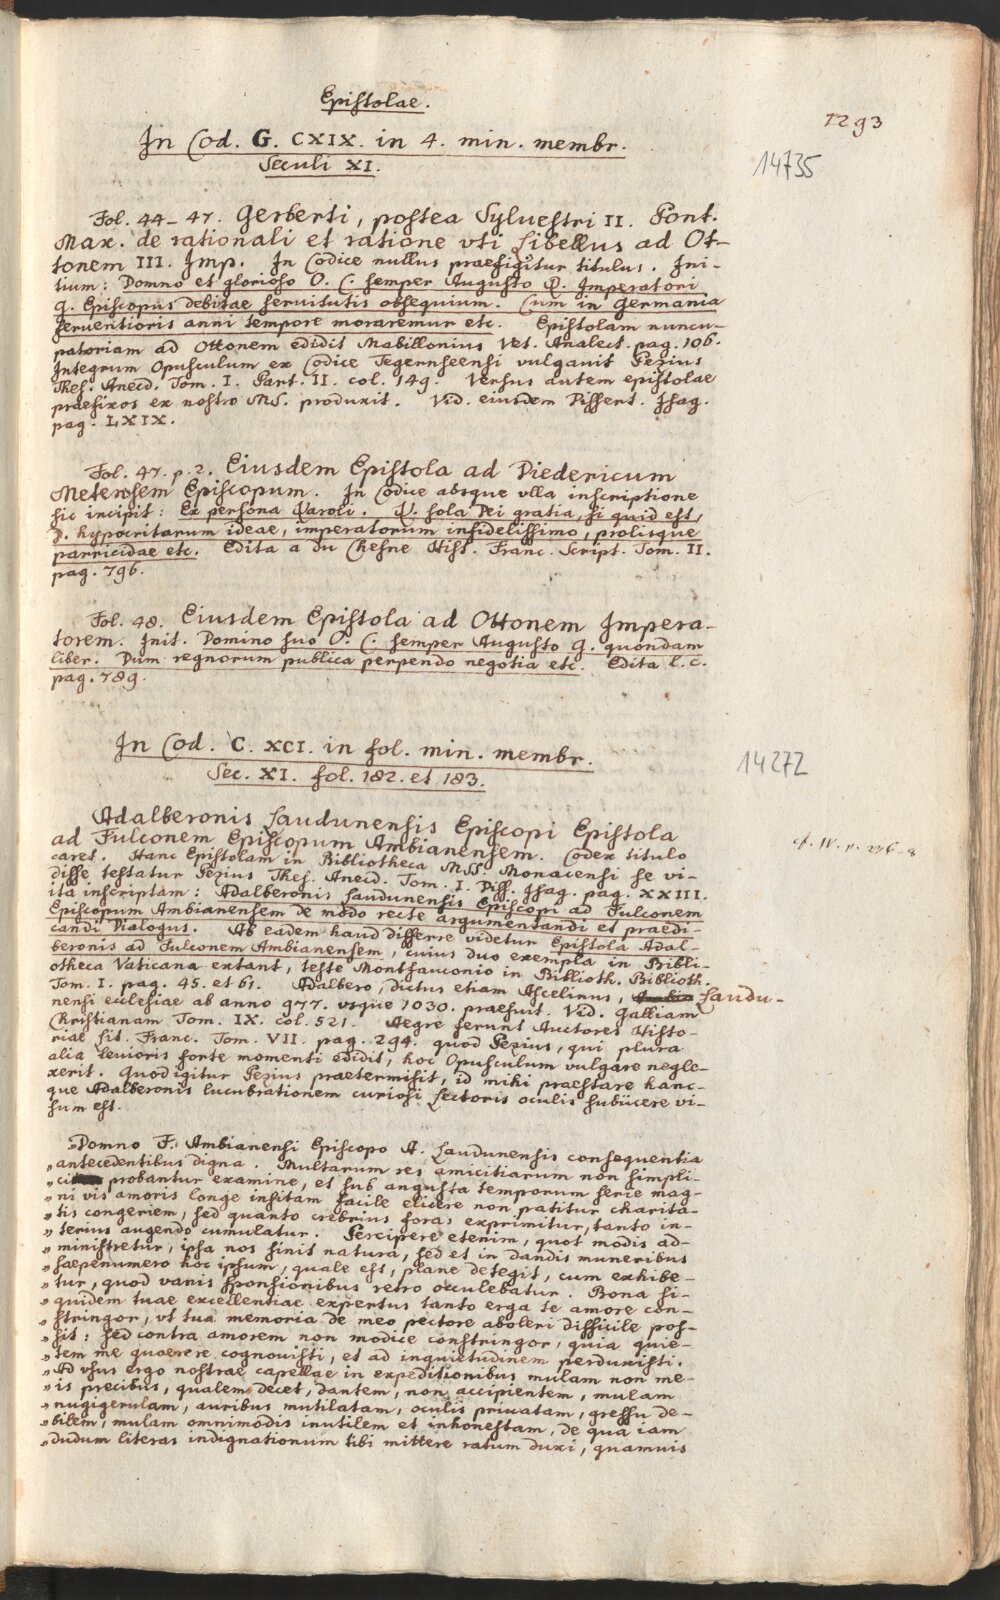 Epistolae.
1293
In Cod. G. CXIX. in 4. min. membr.
14735
Seculi XI.
Fol. 44-47. Gerberti, postea Sylvestri II. Pont.
Max. de rationali et ratione vti Libellus ad Ot-
tonem III. Imp. In Codice nullus praefigitur titulus. Ini-
tium: Domno et glorioso O. C. semper Augusto D. Imperatori
G. Episcopus debitae servitutis obsequium. Cum in Germania
ferventioris anni tempore moraremur etc. Epistolam nuncu-
patoriam ad Ottonem edidit Mabillonius Vet. Analect. pag. 106.
Integrum Opusculum ex Codice Tegernseensi vulgavit Pezius
Thes. Anecd. Tom. I. Part. II. col. 149. Versus autem epistolae
praefixos ex nostro MS. produxit. Vid. eiusdem Dissert. Isag.
pag. LXIX.
Fol. 47. p. 2. Eiusdem Epistola ad Diedericum
Metensem Episcopum. In Codice absque vlla inscriptione
sic incipit: Ex persona Karoli. K. sola Dei gratia, si quid est,
D. hypocritarum ideae, imperatorum infidelissimo, prolisque
parricidae etc. Edita a du Chesne Hist. Franc. Script. Tom. II.
pag. 796.
Fol. 48. Eiusdem Epistola ad Ottonem Impera-
torem. Init. Domino suo O. C. semper Augusto G. quondam
liber. Dum regnorum publica perpendo negotia etc. Edita l. c.
pag. 789.
In Cod. C. XCI. in fol. min. membr.
14272
Sec. XI. fol. 182. et 183.
Adalberonis Laudunensis Episcopi Epistola
ad Fulconem Episcopum Ambianensem. Codex titulo
caret. Hanc Epistolam in Bibliotheca MSS. Monacensi se vi-
disse testatur Pezius Thes. Anecd. Tom. I. Diss. Isag. pag. XXIII.
ita inscriptam: Adalberonis Laudunensis Episcopi ad Fulconem
Episcopum Ambianensem de modo recte argumentandi et praedi-
candi Dialogus. Ab eadem haud differre videtur Epistola Adal-
beronis ad Fulconem Ambianensem, cuius duo exempla in Bibli-
otheca Vaticana extant, teste Montfauconio in Biblioth. Biblioth.
Tom. I. pag. 45. et 61. Adalbero, dictus etiam Ascelinus, Laudu-
nensi ecclesiae ab anno 977. vsque 1030. praefuit. Vid. Galliam
Christianam Tom. IX. col. 521. Aegre ferunt Auctores Histo-
riae lit. Franc. Tom. VII. pag. 294. quod Pezius, qui plura
alia levioris forte momenti edidit, hoc Opusculum vulgare negle-
xerit. Quod igitur Pezius praetermisit, id mihi praestare hanc-
que Adalberonis lucubrationem curiosi Lectoris oculis subiicere vi-
sum est.
„Domno F. Ambianensi Episcopo A. Laudunensis consequentia
„antecedentibus digna. Multarum res amicitiarum non simpli-
„ci probantur examine, et sub angusta temporum serie mag-
„ni vis amoris longe insitam facile elicere non patitur charita-
„tis congeriem, sed quanto crebrius foras exprimitur, tanto in-
„terius augendo cumulatur. Percipere etenim, quot modis ad-
„ministretur, ipsa nos sinit natura, sed et in dandis muneribus
„saepenumero hoc ipsum, quale est, plane detegit, cum exhibe-
„tur, quod vanis sponsionibus retro occulebatur. Bona si-
„quidem tuae excellentiae expertus tanto erga te amore con-
„stringor, vt tua memoria de meo pectore aboleri difficile pos-
„sit: sed contra amorem non modice constringor, quia quie-
„tem me quaerere cognovisti, et ad inquietudinem perduxisti.
„Ad vsus ergo nostrae capellae in expeditionibus mulam non me-
„is precibus, qualem decet, dantem, non accipientem, mulam
„nugigerulam, auribus mutilatam, oculis privatam, gressu de-
„bilem, mulam omnimodis inutilem et inhonestam, de qua iam
„dudum literas indignationum tibi mittere ratum duxi, quamuis